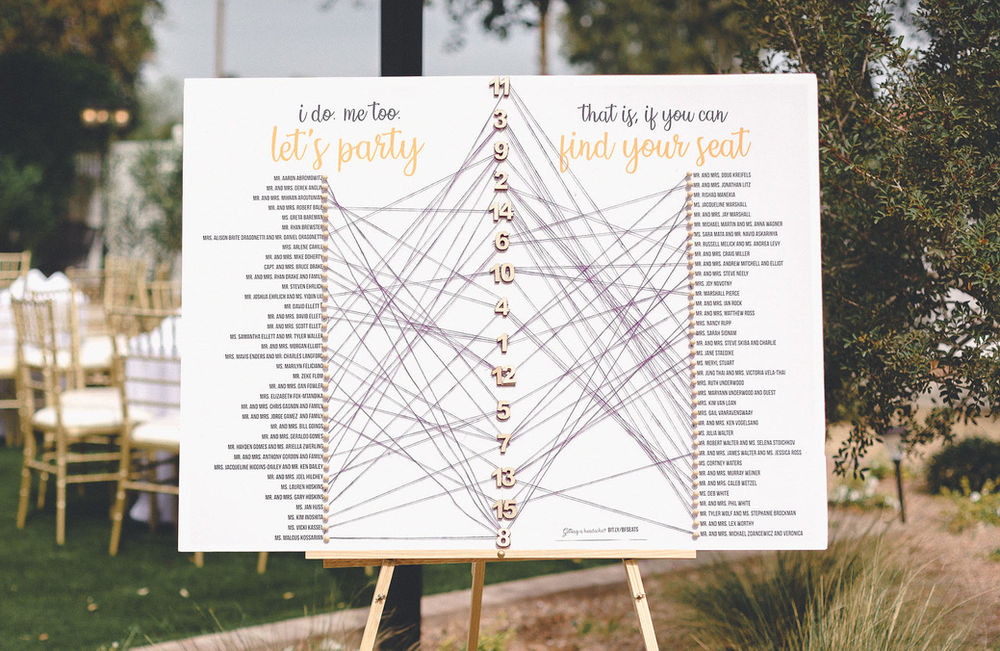 i do. me too.
let's party
that is, if you can
find your seat
11
3
9
2
14
6
10
4
1
12
5
7
13
15
8
MR. AARON ABROMOWITZ
MR. AND MRS. DEREK ANGLIN
MR. AND MRS. ROBERT BALE
MS. GRETA BAREMAN
MR. RHAN BREWSTER
MRS. ALISON BRITE DRAGONETTI AND MR. DANIEL DRAGONETTI
MRS. ARLENE CAHILL
MR. AND MRS. MIKE DOHERTY
CAPT. AND MRS. BRUCE DRAKE
MR. AND MRS. RHAN DRAKE AND FAMILY
MR. STEVEN EHRLICH
MR. JOSHUA EHRLICH AND MS. YIQUN LIU
MR. DAVID ELLETT
MR. AND MRS. DAVID ELLETT
MR. AND MRS. SCOTT ELLETT
MS. SAMANTHA ELLETT AND MR. TYLER WALLER
MR. AND MRS. MORGAN ELLIOTT
MRS. MAVIS ENDERS AND MR. CHARLES LANGFORD
MS. MARILYN FELICIANO
MR. ZEKE FLOM
MR. AND MRS. DAN FOWLER
MRS. ELIZABETH FOX-MTANDIKA
MR. AND MRS. CHRIS GAGNON AND FAMILY
MR. AND MRS. JORGE GAMEZ AND FAMILY
MR. AND MRS. BILL GOINGS
MR. AND MRS. GERALDO GOMES
MR. HAYDEN GOMES AND MS. ARIELLA ZWERLING
MR. AND MRS. ANTHONY GORDON AND FAMILY
MRS. JACQUELINE HIGGINS-DAILEY AND MR. KEN DAILEY
MR. AND MRS. JOEL HUGHEY
MS. LAUREN HOSKINS
MR. AND MRS. GARY HOSKINS
MS. JAN HUSS
MS. KIM INOSHITA
MS. VICKI KASSEL
MS. MALOUS KOSSARIAN
MR. AND MRS. DOUG KREIFELS
MR. AND MRS. JONATHAN LITZ
MR. RISHAD MANEKIA
MS. JACQUELINE MARSHALL
MR. AND MRS. JAY MARSHALL
MR. MICHAEL MARTIN AND MS. ANNA WAGNER
MS. SARA MATA AND MR. NAVID ASKARINYA
MR. RUSSELL MELICK AND MS. ANDREA LEVY
MR. AND MRS. CRAIG MILLER
MR. AND MRS. ANDREW MITCHELL AND ELLIOT
MR. AND MRS. STEVE NEELY
MRS. JOY NOVOTNY
MR. MARSHALL PIERCE
MR. AND MRS. IAN ROCK
MR. AND MRS. MATTHEW ROSS
MRS. NANCY RUPP
MRS. SARAH SIDNAM
MR. AND MRS. STEVE SKIBA AND CHARLIE
MS. JANE STAEDIKE
MS. MERYL STUART
MR. JUNG THAI AND MRS. VICTORIA VELA-THAI
MRS. RUTH UNDERWOOD
MS. MARYANN UNDERWOOD AND GUEST
MS. KIM VAN LOAN
MRS. GAIL VANRAVENSWAAY
MR. AND MRS. KEN VOGELSANG
MS. JULIA WALTER
MR. ROBERT WALTER AND MS. SELENA STOICHKOV
MR. JAMES WALTER AND MS. JESSICA ROSS
MS. CORTNEY WATERS
MR. AND MRS. MURRAY WEINER
MR. AND MRS. CALEB WETZEL
MS. DEB WHITE
MR. AND MRS. PHIL WHITE
MR. TYLER WOLF AND MS. STEPHANIE BROCKMAN
MR. AND MRS. LEX WORTHY
MR. AND MRS. MICHAEL ZDANCEWICZ AND VERONICA
Getting a headache? BIT.LY/BFSEATS